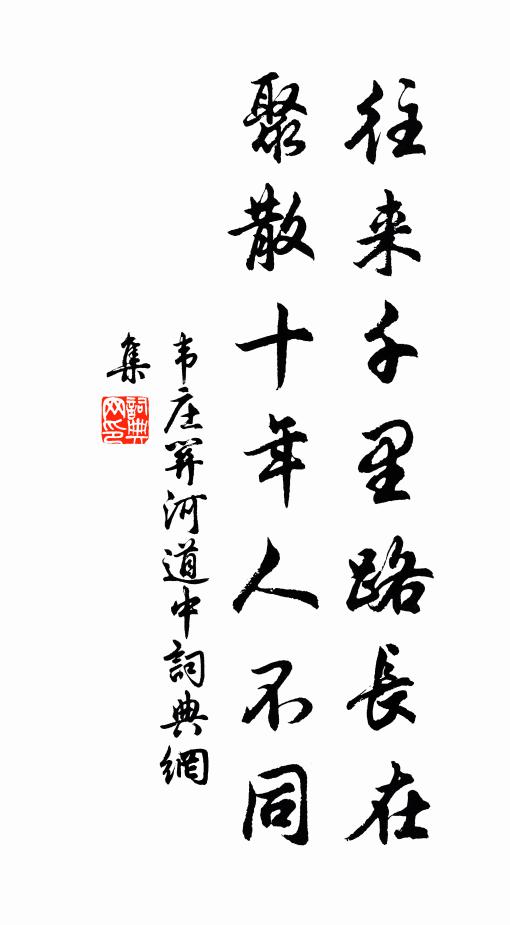 往来千里路長在
聚散十年人不同
韦庄関河道中詞典網
集
詞典網印